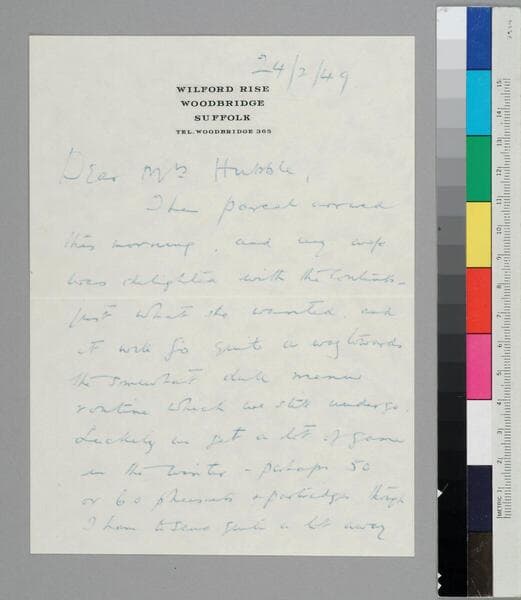 24/2/49
WILFORD RISE
WOODBRIDGE
SUFFOLK
TEL. WOODBRIDGE 365
Dear Mrs Hubble,
The parcel arrived
this morning, and my wife
was delighted with the contents -
just what she wanted, and
it will go quite a way towards
the somewhat dull menu
routine which we still undergo.
Luckily we get a lot of game
in the winter - perhaps 50
or 60 pheasants & partridges though
I have to send quite a lot away